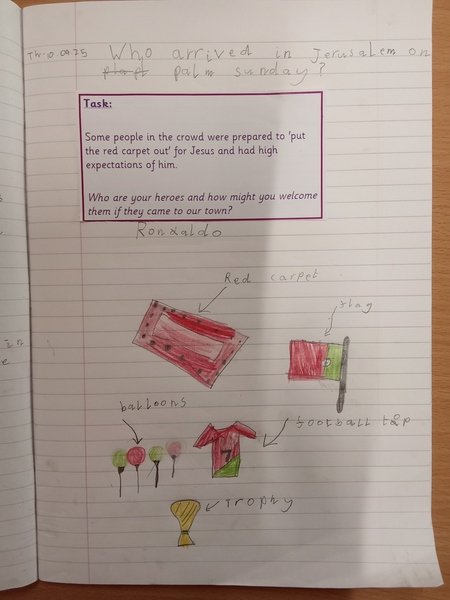 Th.10.04.25 Who arrived in Jerusalem on
palm sunday?
Task:
Some people in the crowd were prepared to 'put
the red carpet out' for Jesus and had high
expectations of him.
Who are your heroes and how might you welcome
them if they came to our town?
Ronxaldo
Red carpet
flag
balloons
football top
7
trophy
in
e